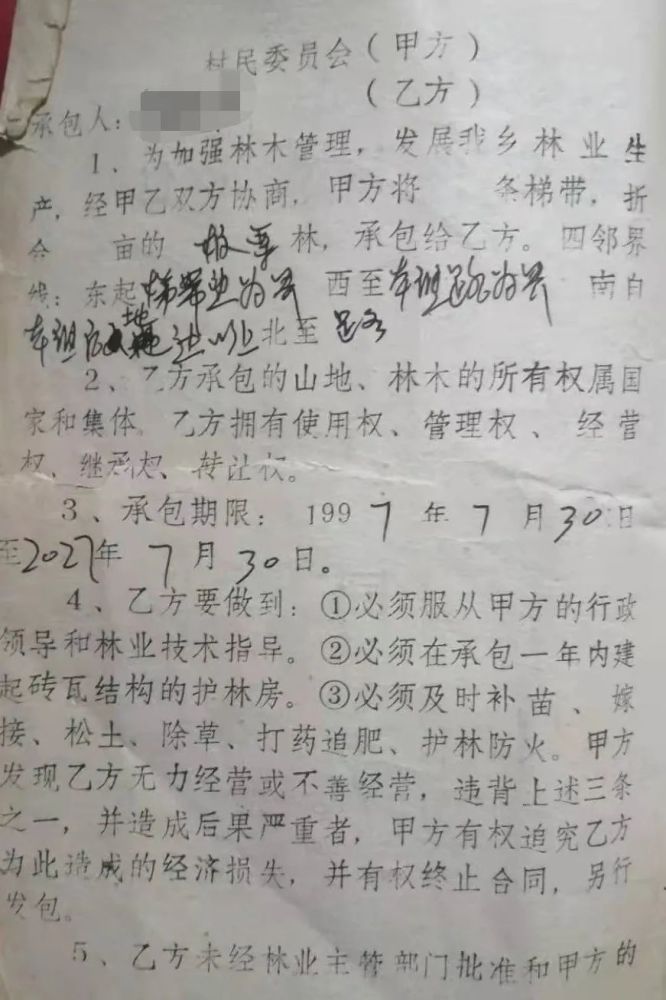 村民委员会（甲方）
（乙方）
承包人：
1、为加强林木管理，发展我乡林业生
产，经甲乙双方协商，甲方将 条梯带，折
合 亩的 板栗 林，承包给乙方。四邻界
线：东起梯带边为界 西至本组路为界 南自
本组 地边以上北至 路
2、乙方承包的山地、林木的所有权属国
家和集体。乙方拥有使用权、管理权、经营
权、继承权、转让权。
3、承包期限：1997年7月30日
至2027年7月30日。
4、乙方要做到：①必须服从甲方的行政
领导和林业技术指导。②必须在承包一年内建
起砖瓦结构的护林房。③必须及时补苗、嫁
接、松土、除草、打药追肥、护林防火。甲方
发现乙方无力经营或不善经营，违背上述三条
之一，并造成后果严重者，甲方有权追究乙方
为此造成的经济损失，并有权终止合同，另行
发包。
5、乙方未经林业主管部门批准和甲方的